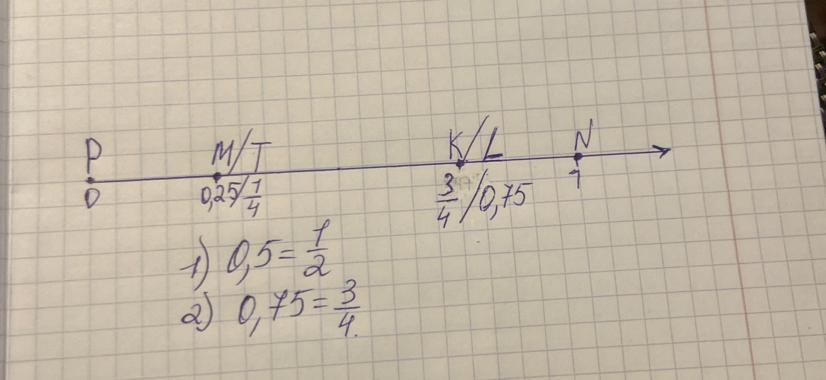 P M/T K/L N
0 0,25/1/4 3/4/0,75 1
1) 0,5=1/2
2) 0,75=3/4